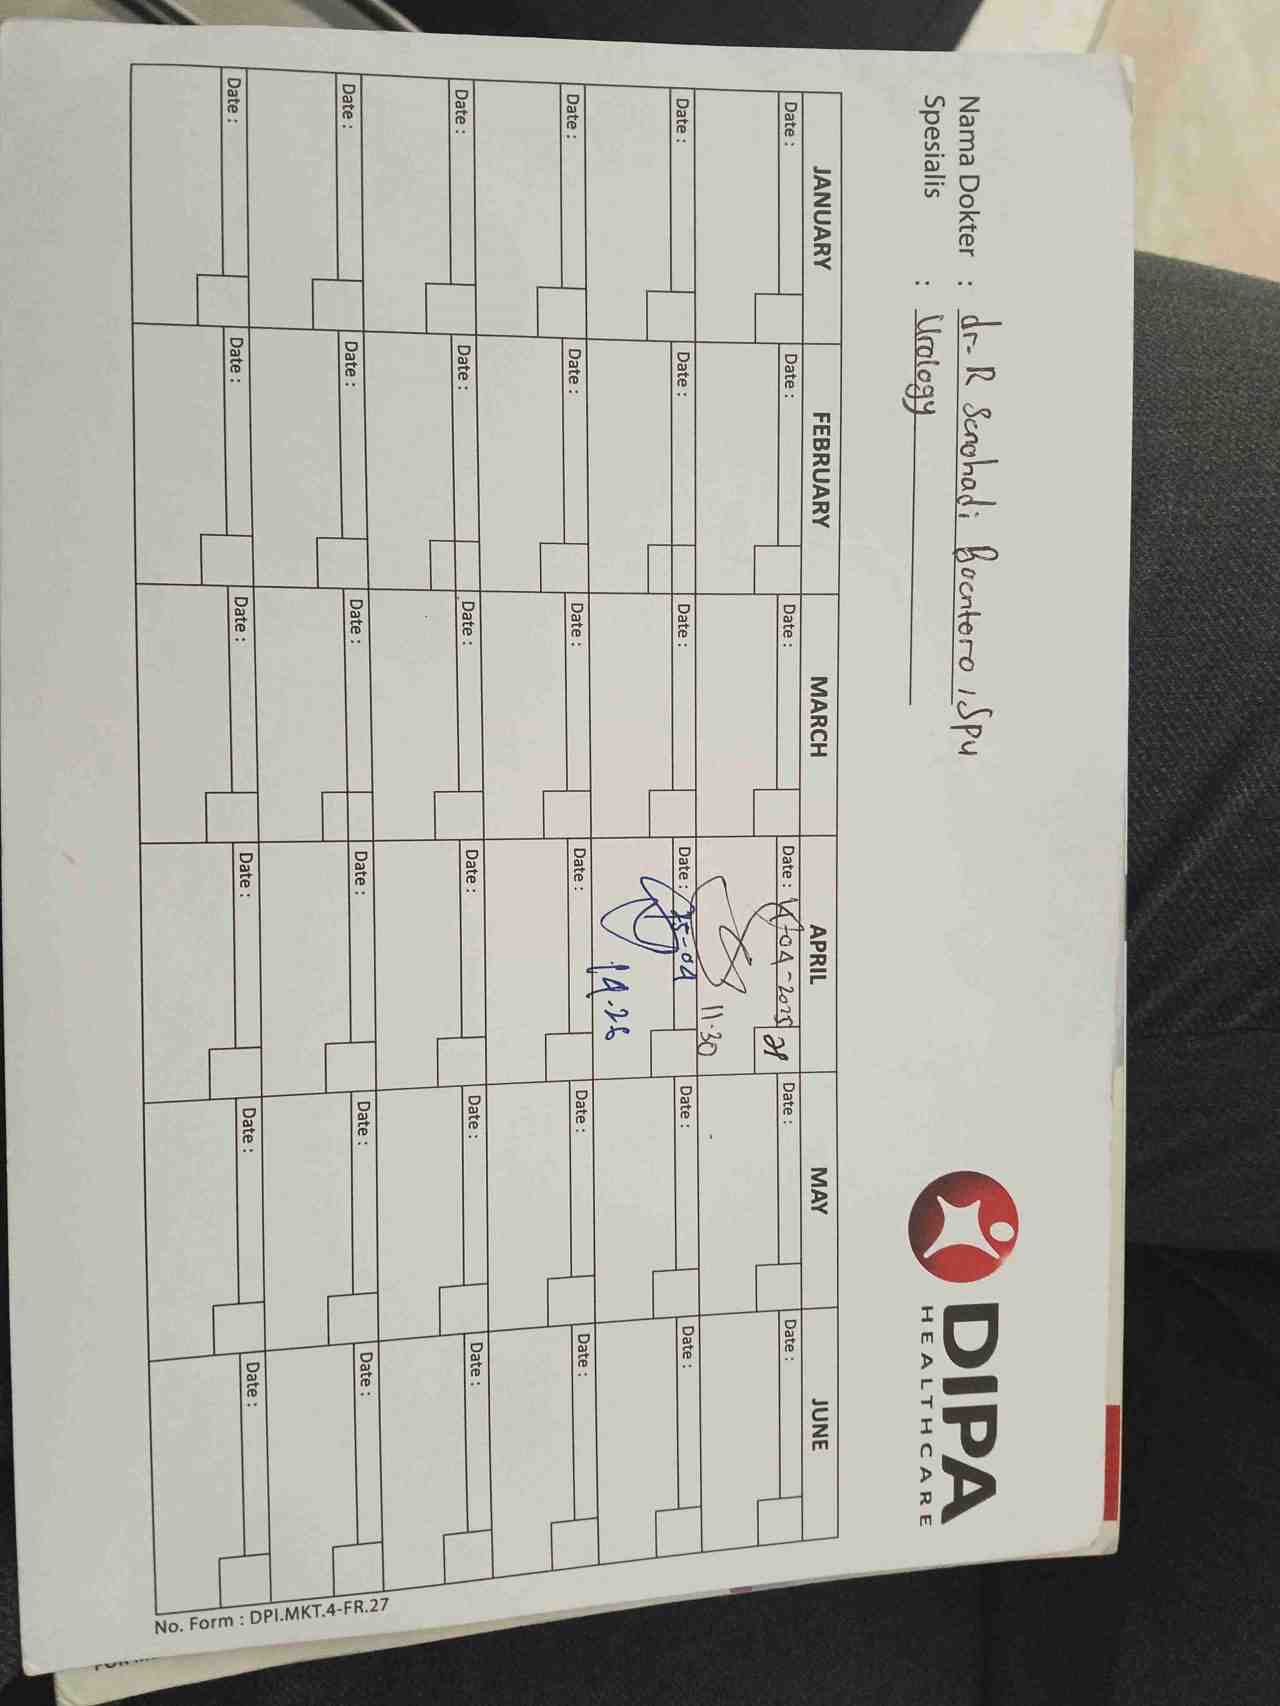 Nama Dokter : dr. R Senohadi Boentoro, SpU
Spesialis : Urology
DIPA
HEALTHCARE
JANUARY FEBRUARY MARCH APRIL MAY JUNE
Date : Date : Date : Date : -04-2025 Date : Date :
11.30
Date : Date : Date : Date : 25-04 Date : Date :
14.28
Date : Date : Date : Date : Date : Date :
Date : Date : Date : Date : Date : Date :
Date : Date : Date : Date : Date : Date :
Date : Date : Date : Date : Date : Date :
No. Form : DPI.MKT.4-FR.27